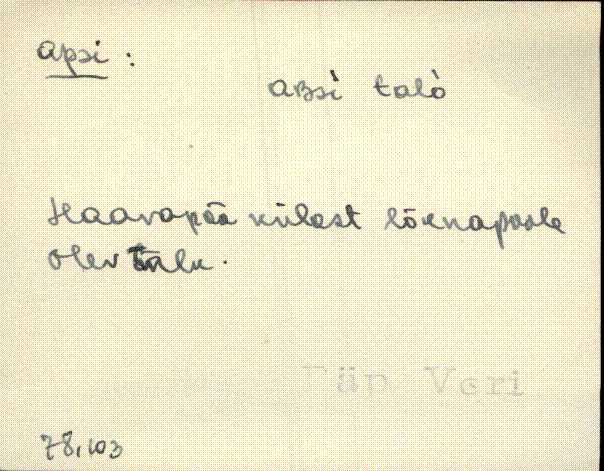 apsi :
aBsi talo
Haavapää külast lõunapoole
olev talu.
Räp Veri
78,103